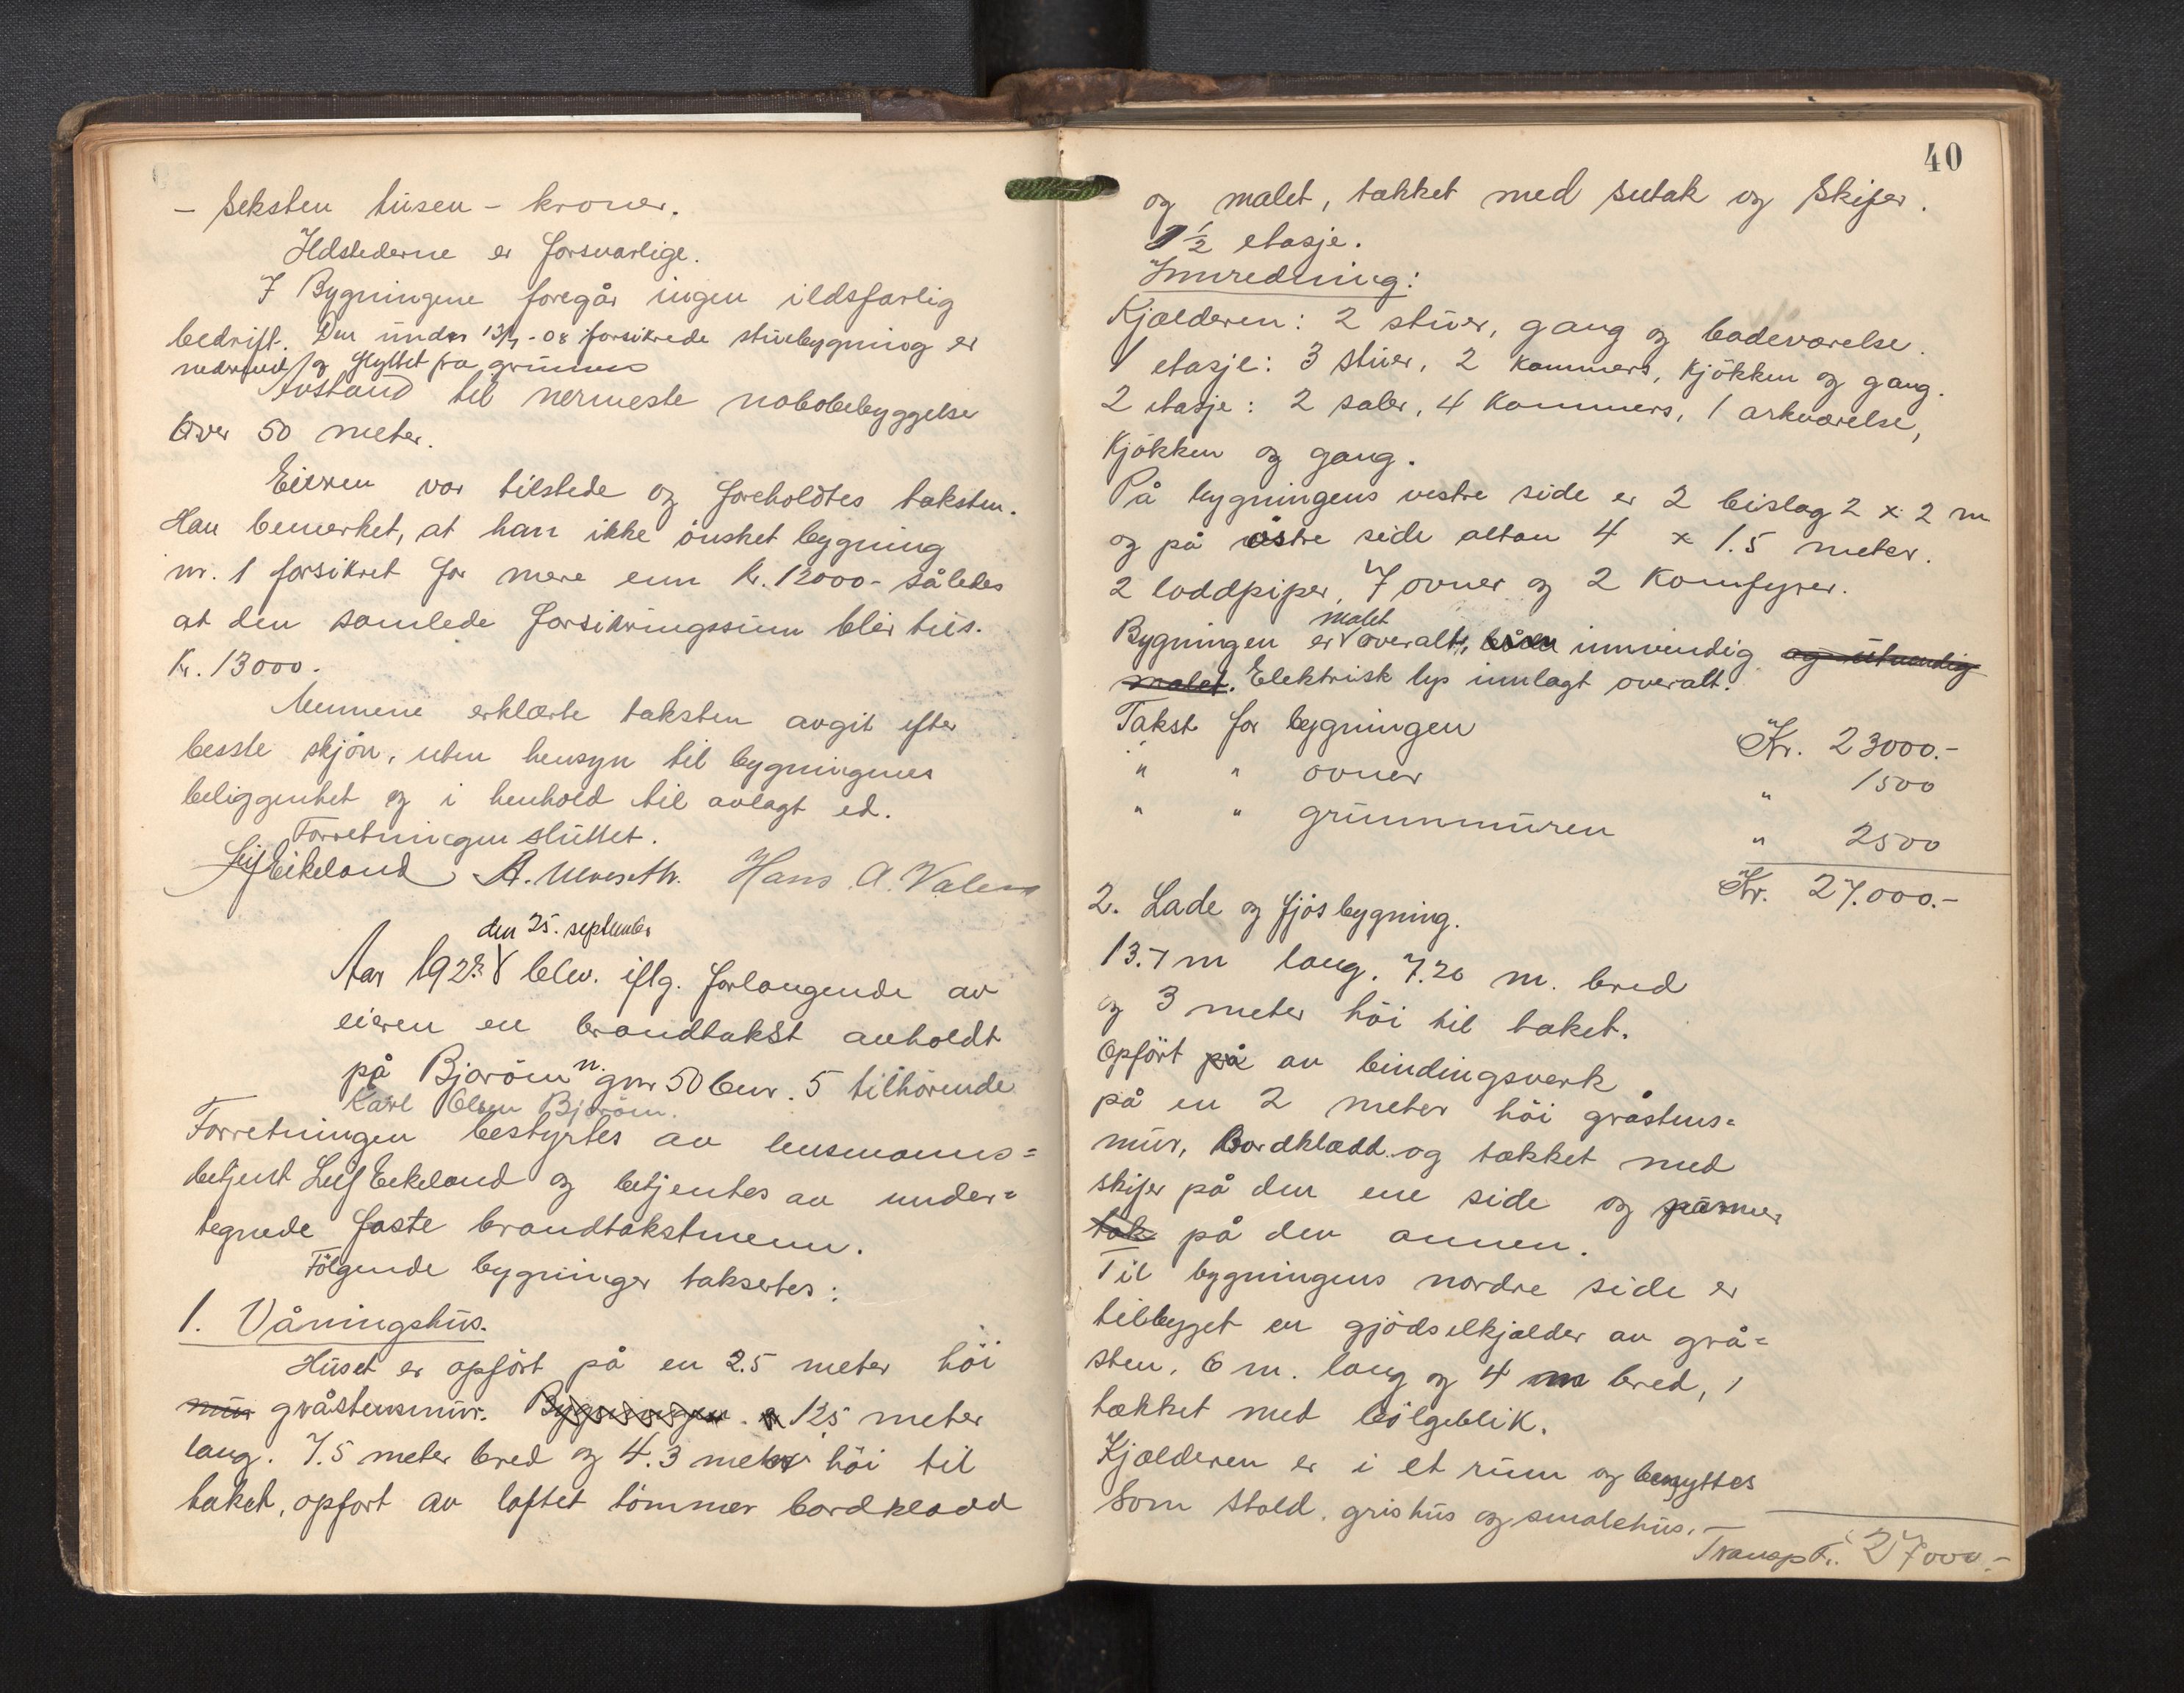 - seksten tusen - kroner.
Ildstederne er forsvarlige.
I Bygningene foregår ingen ildsfarlig
bedrift. Den under 13/7-08 forsikrede stuebygning er
nedrevet og flyttet fra grunnen
Avstand til nermeste nabobebyggelse
over 50 meter.
Eieren var tilstede og foreholdtes taksten.
Han bemerket, at han ikke ønsket bygning
nr. 1 forsikret for mere enn kr. 12000- således
at den samlede forsikringssum blir tils.
Kr. 13000.
Mennene erklærte taksten avgit efter
beste skjøn, uten hensyn til bygningenes
beliggenhet og i henhold til avlagt ed.
Forretningen sluttet.
Leif Eikeland A. Ulveseth. Hans A. Valen
den 25. september
Aar 1928 blev. iflg. forlangende av
eieren en brandtakst avholdt
på Bjorøen n. gnr 50 bnr. 5 tilhørende
Karl Olsen Bjorøen.
Forretningen bestyrtes av lensmanns=
betjent Leif Eikeland og betjentes av under=
tegnede faste brandtakstmenn.
Følgende bygninger taksertes:
1. Våningshus.
Huset er opført på en 2.5 meter høi
mur gråstensmur. Bygningen. 12,5 meter
lang. 7.5 meter bred og 4.3 meter høi til
taket, opført av laftet tømmer bordkledd
40
og malet, tækket med sutak og Skifer.
1 1/2 etasje.
Innredning:
Kjælderen: 2 stuer, gang og badeværelse.
1 etasje: 3 stuer, 2 kammers, kjøkken og gang.
2 etasje: 2 saler, 4 kammers, 1 arkværelse,
Kjøkken og gang.
På bygningens vestre side er 2 beislag 2 x 2 m
og på østre side altan 4 x 1.5 meter.
2 loddpiper, 7 ovner og 2 Komfyrer.
malet
Bygningen er overalt, innvendig og utvendig
malet. Elektrisk lys innlagt overalt.
Takst for bygningen Kr. 23000.-
" " ovner " 1500
" " grunnmuren " 2500
Kr. 27.000.-
2. Lade og fjøsbygning.
13.7 m lang. 7.20 m. bred
og 3 meter høi til taket.
Opført på av bindingsverk
på en 2 meter høi gråstens=
mur, Bordkledd og tækket med
skifer på den ene side og panner
tak på den annen.
Til bygningens nordre side er
tilbygget en gjødselkjælder av grå=
sten, 6 m. lang og 4 m bred,
tækket med bølgeblik.
Kjælderen er i et rum og benyttes
som Stald, grishus og smalehus.-
Transpt. 27000.-